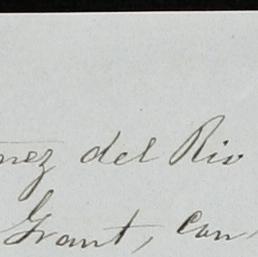 nez del Rio
Grant, Con